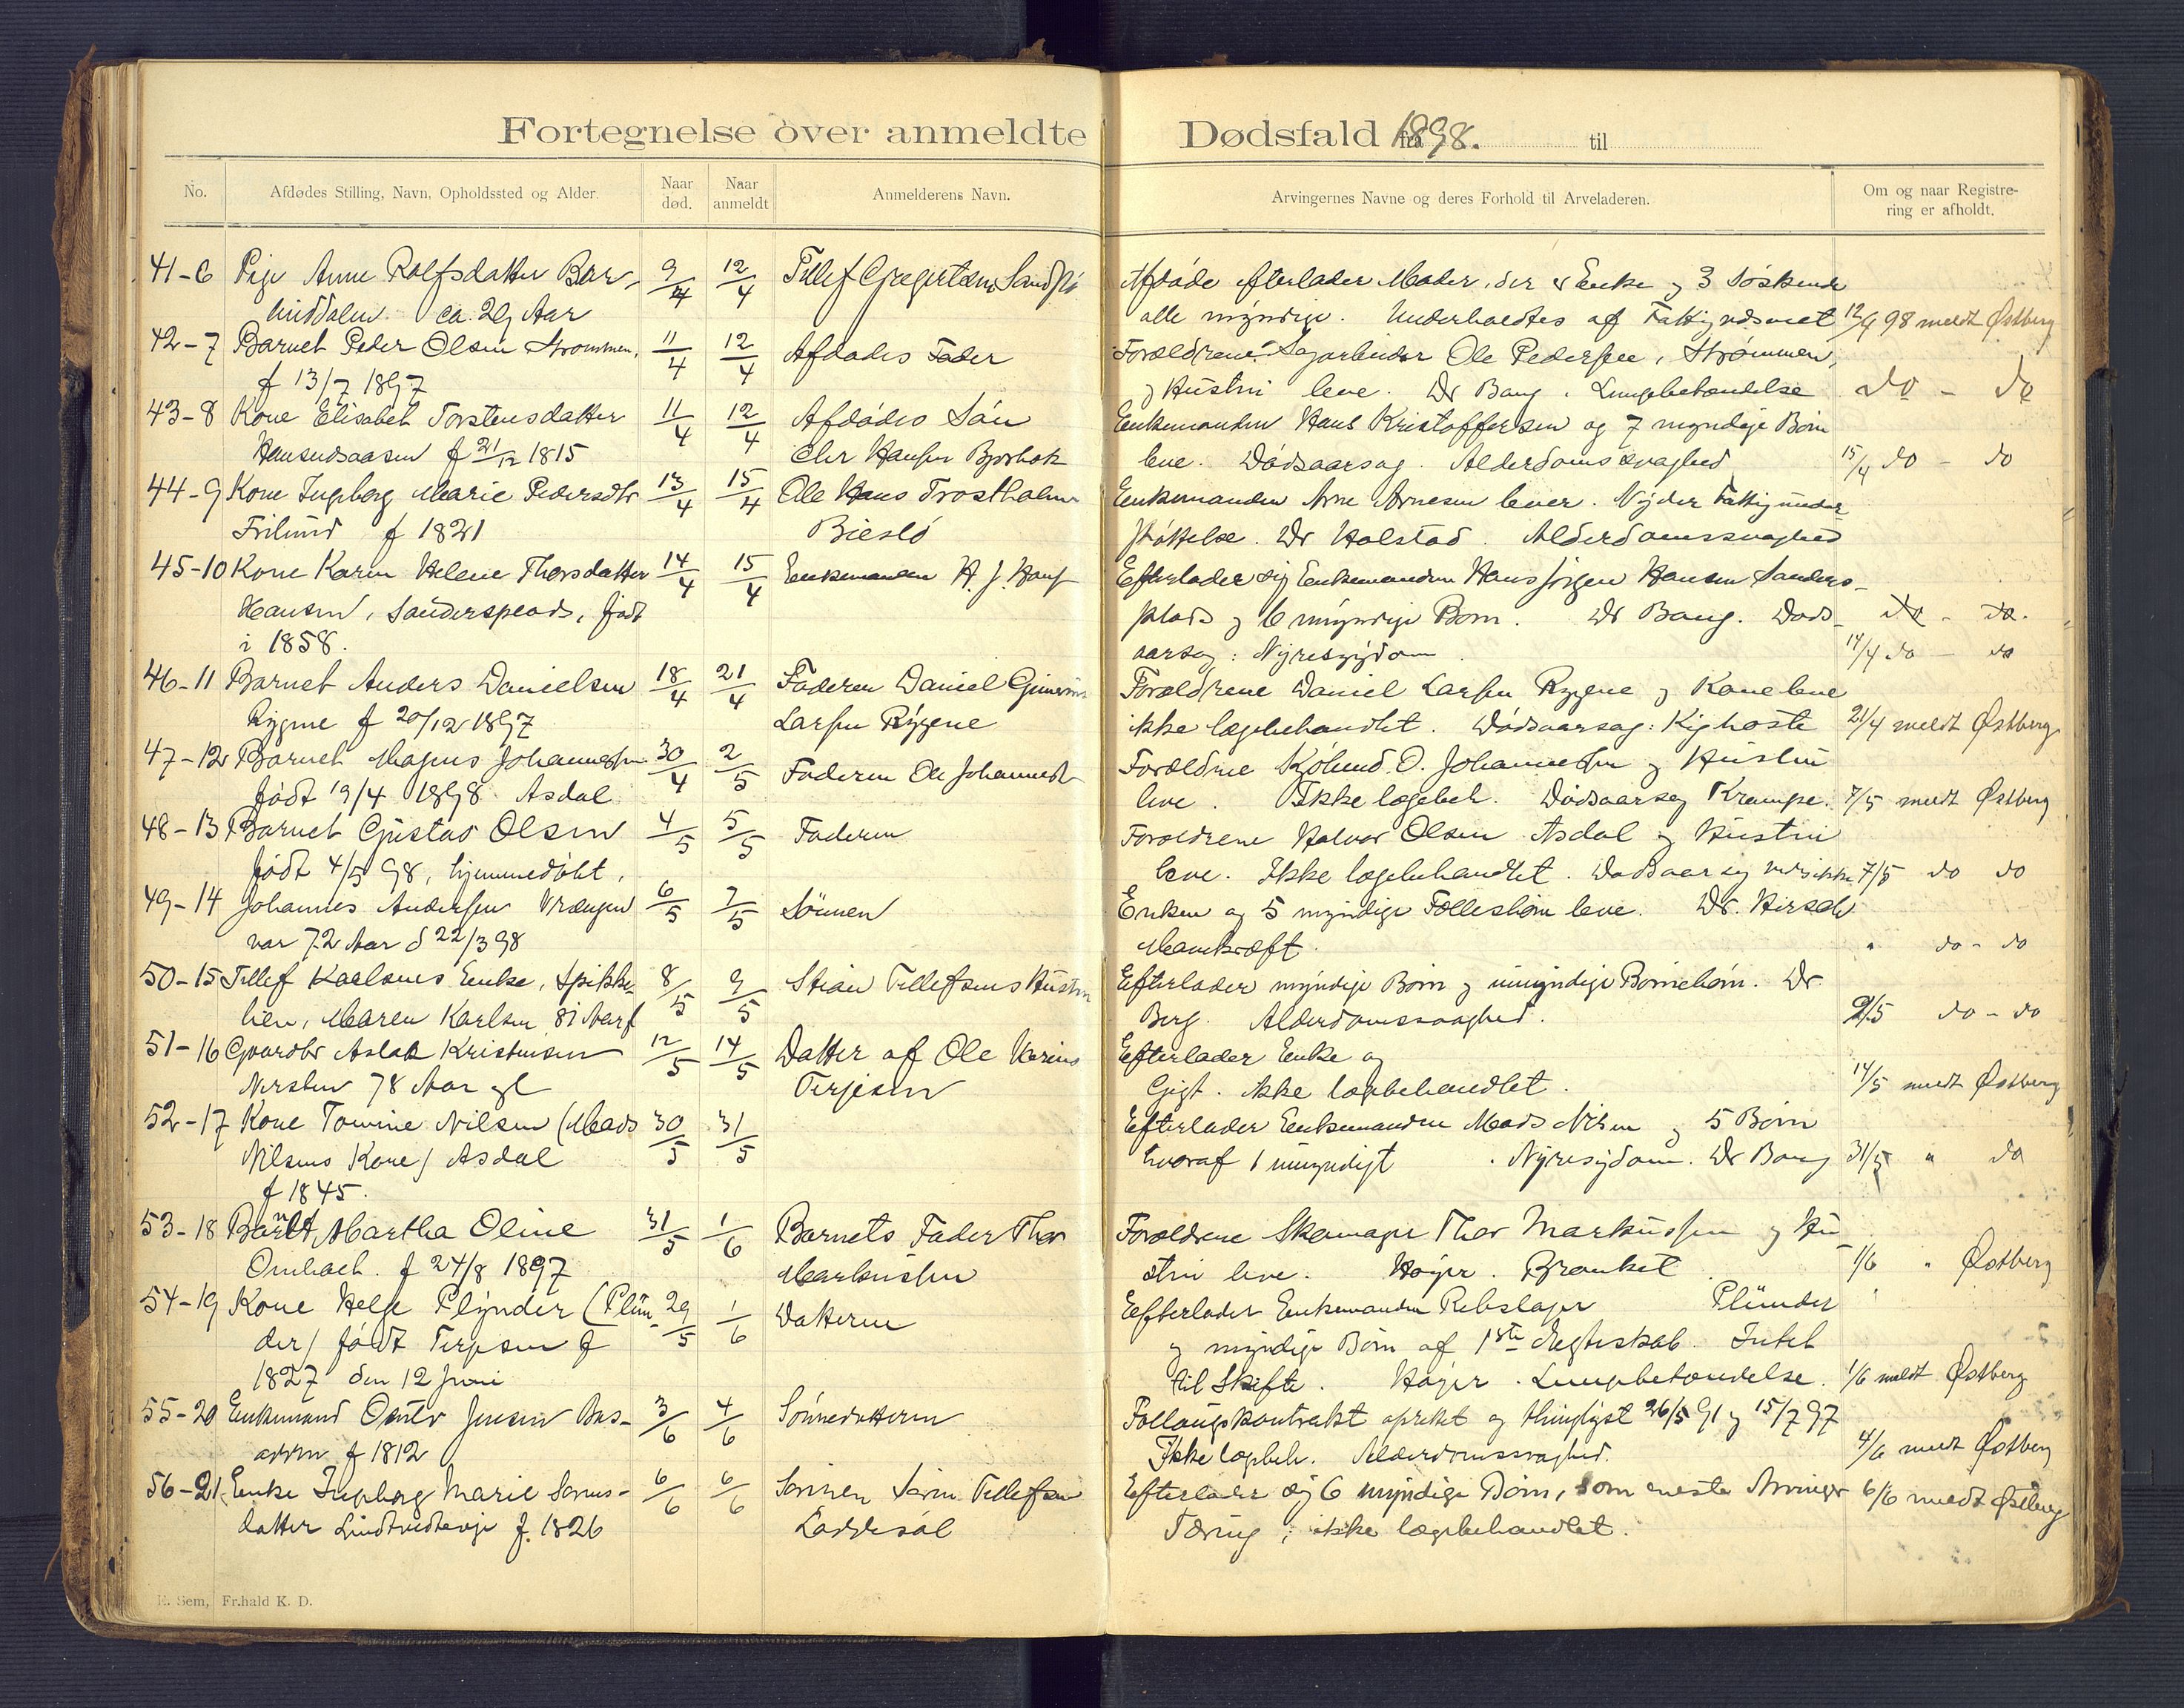 Fortegnelse over anmeldte Dødsfald fra 1898. til
No.
Afdødes Stilling, Navn, Opholdssted og Alder.
Naar død.
Naar anmeldt
Anmelderens Navn.
Arvingernes Navne og deres Forhold til Arveladeren.
Om og naar Registrering er afholdt.
41-6 Pige Anne Rolfsdatter 9/4 12/4 Tellef Afdøde efterlader Moder, der er Enke og 3 Søskende
ca. 29 Aar alle myndige. Underholdtes af 12/4 98 meldt Østberg
42-7 Barnet Peder Olsen Strømmen, 11/4 12/4 Afdødes Fader Forældrene Sagarbeider Ole Pedersen, Strømmen,
f 13/7 1897 og Hustru leve. Dr Bang. Lungebetændelse do - do
43-8 Kone Elisabet Torstensdatter 11/4 12/4 Afdødes Søn Enkemanden Hans Kristoffersen og 7 myndige Børn
f 21/12 1815 Chr Hansen leve. Dødsaarsag. Alderdomssvaghed 15/4 do - do
44-9 Kone Ingeborg Marie Pedersdtr 13/4 15/4 Ole Hans Trostholm Enkemanden Arne Arnesen lever. Nyder Fattigunder
Frilund f 1821 støttelse. Dr Holstad. Alderdomssvaghed
45-10 Kone Karen Helene Thorsdatter 14/4 15/4 Enkemanden H. J. Hans Efterlader sig Enkemanden Hans Jørgen Hansen Sanders-
Hansen, Sandersplads, født plads og 6 myndige Børn. Dr Bang. Døds- do - do.
i 1858. aarsag: Nyresygdom. 14/4 do - do
46-11 Barnet Anders Danielsen 18/4 21/4 Faderen Daniel Forældrene Daniel Larsen Rygene og Kone leve
Rygene f 20/12 1897 Larsen Rygene ikke lægebehandlet. Dødsaarsag: Kighoste 21/4 meldt Østberg
47-12 Barnet Magnus Johannessen 30/4 2/5 Faderen Ole Johannes Forældrene O. Johannessen og Hustru
født 19/4 1898. Asdal leve. Ikke lægebeh. Dødsaarsag Krampe. 7/5 meldt Østberg
48-13 Barnet Gustav Olsen 4/5 5/5 Faderen Forældrene Halvor Olsen Asdal og Hustru
født 4/5 98, hjemmedøbt. leve. Ikke lægebehandlet. Dødsaarsag vides ikke 7/5 do do
49-14 Johannes Andersen Vrengen 6/5 7/5 Sønnen Enken og 5 myndige Fællesbørn leve. Dr. Hirsch
var 72 Aar d 22/3 98 Mavekræft. " do - do
50-15 Tellef Karlsens Enke, Spikke- 8/5 9/5 Stian Tellefsens Hustru Efterlader myndige Børn og umyndige Børnebørn. Dr
lien, Maren Karlsen 81 Aar Berg. Alderdomssvaghed. 9/5 do - do
51-16 Gaardbr Aslak Kristensen 12/5 14/5 Datter af Ole Efterlader Enke og
78 Aar gl Terjesen Gigt. ikke lægebehandlet. 14/5 meldt Østberg
52-17 Kone Tomine Nilsen (Mads 30/5 31/5 Efterlader Enkemanden Mads Nilsen og 5 Børn
Nilsens Kone) Asdal hvoraf 1 umyndigt. Nyresygdom. Dr Bang 31/5 " do
f 1845.
53-18 Barnet Martha Oline 31/5 1/6 Barnets Fader Thor Forældrene Skomager Thor Markussen og Hu
f 24/8 1897 Markussen stru leve. Høyer. Bronket 1/6 " Østberg
54-19 Kone Helje Plynder (Plün- 29/5 1/6 Datteren Efterlader Enkemanden Rebslager Plünder
der) født Terjesen f og myndige Børn af 1ste Ægteskab. Intet
1827 den 12 Juni til Skifte. Høyer. Lungebetændelse. 1/6 meldt Østberg
55-20 Enkemand Jensen 3/6 4/6 Sønnedatteren Follaugskontrakt oprettet og thinglyst 26/5 91 og 15/7 97
f 1812 Ikke lægebeh. Alderdomssvaghed. 4/6 meldt Østberg
56-21 Enke Ingeborg Marie Sørens- 6/6 6/6 Sønnen Søren Tellefsen Efterlader sig 6 myndige Børn, som eneste Arvinger 6/6 meldt Østberg
datter f. 1826 Løddesøl Tæring, ikke lægebehandlet.
E. Sem, Fr.hald K. D.